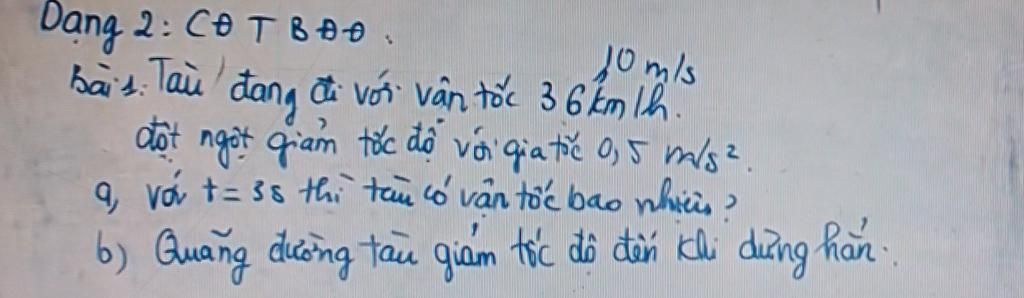 Dạng 2: CĐTBĐĐ.
10 m/s
Bài 1: Tàu đang đi với vận tốc 36km/h.
đột ngột giảm tốc độ với gia tốc 0,5 m/s².
a, với t = 3s thì tàu có vận tốc bao nhiêu?
b) Quãng đường tàu giảm tốc độ đến khi dừng hẳn.